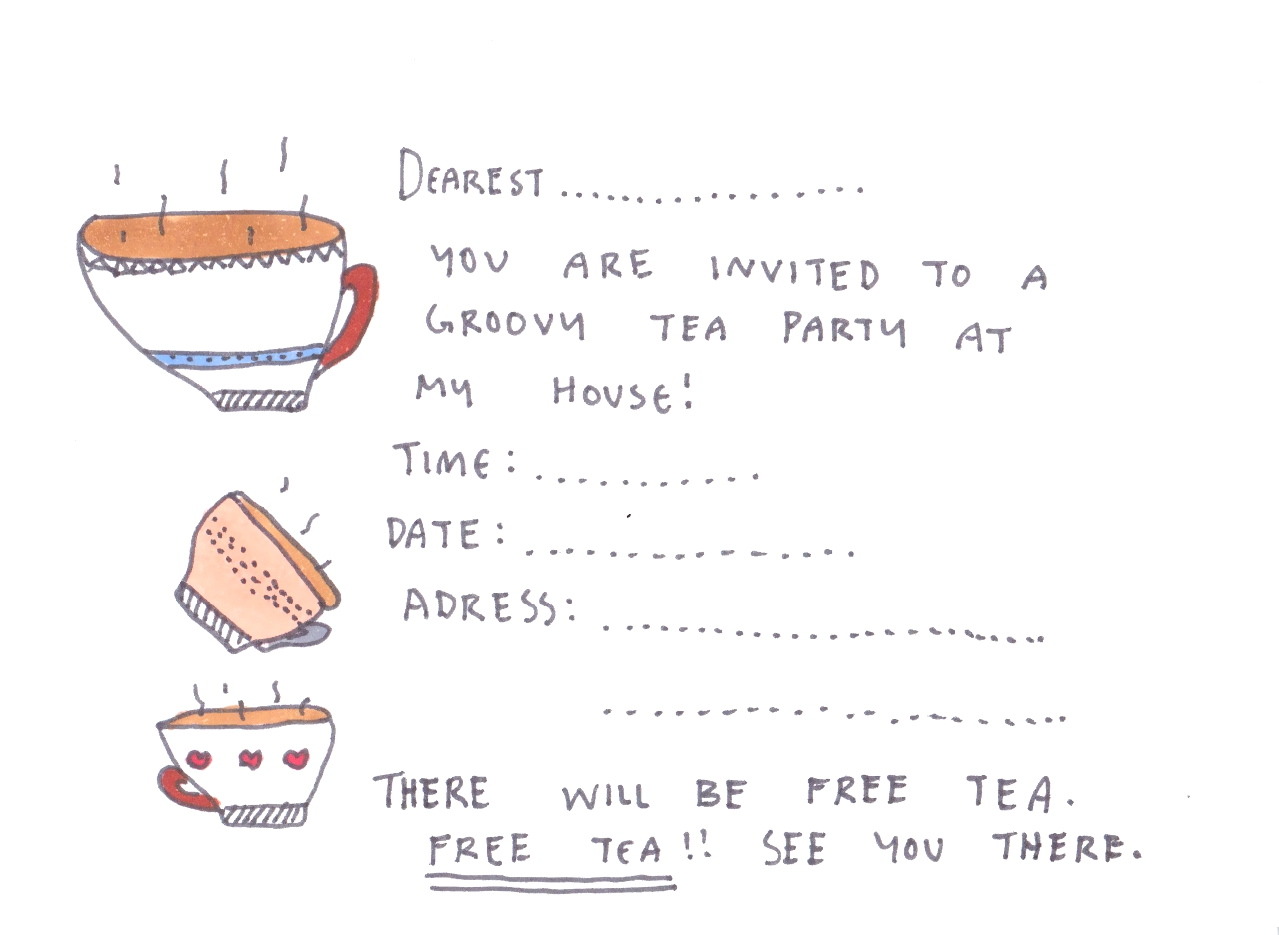 DEAREST ..................
YOU ARE INVITED TO A
GROOVY TEA PARTY AT
MY HOUSE!
TIME: ............
DATE: .................
ADRESS: ...........................
...........................
THERE WILL BE FREE TEA.
FREE TEA!! SEE YOU THERE.